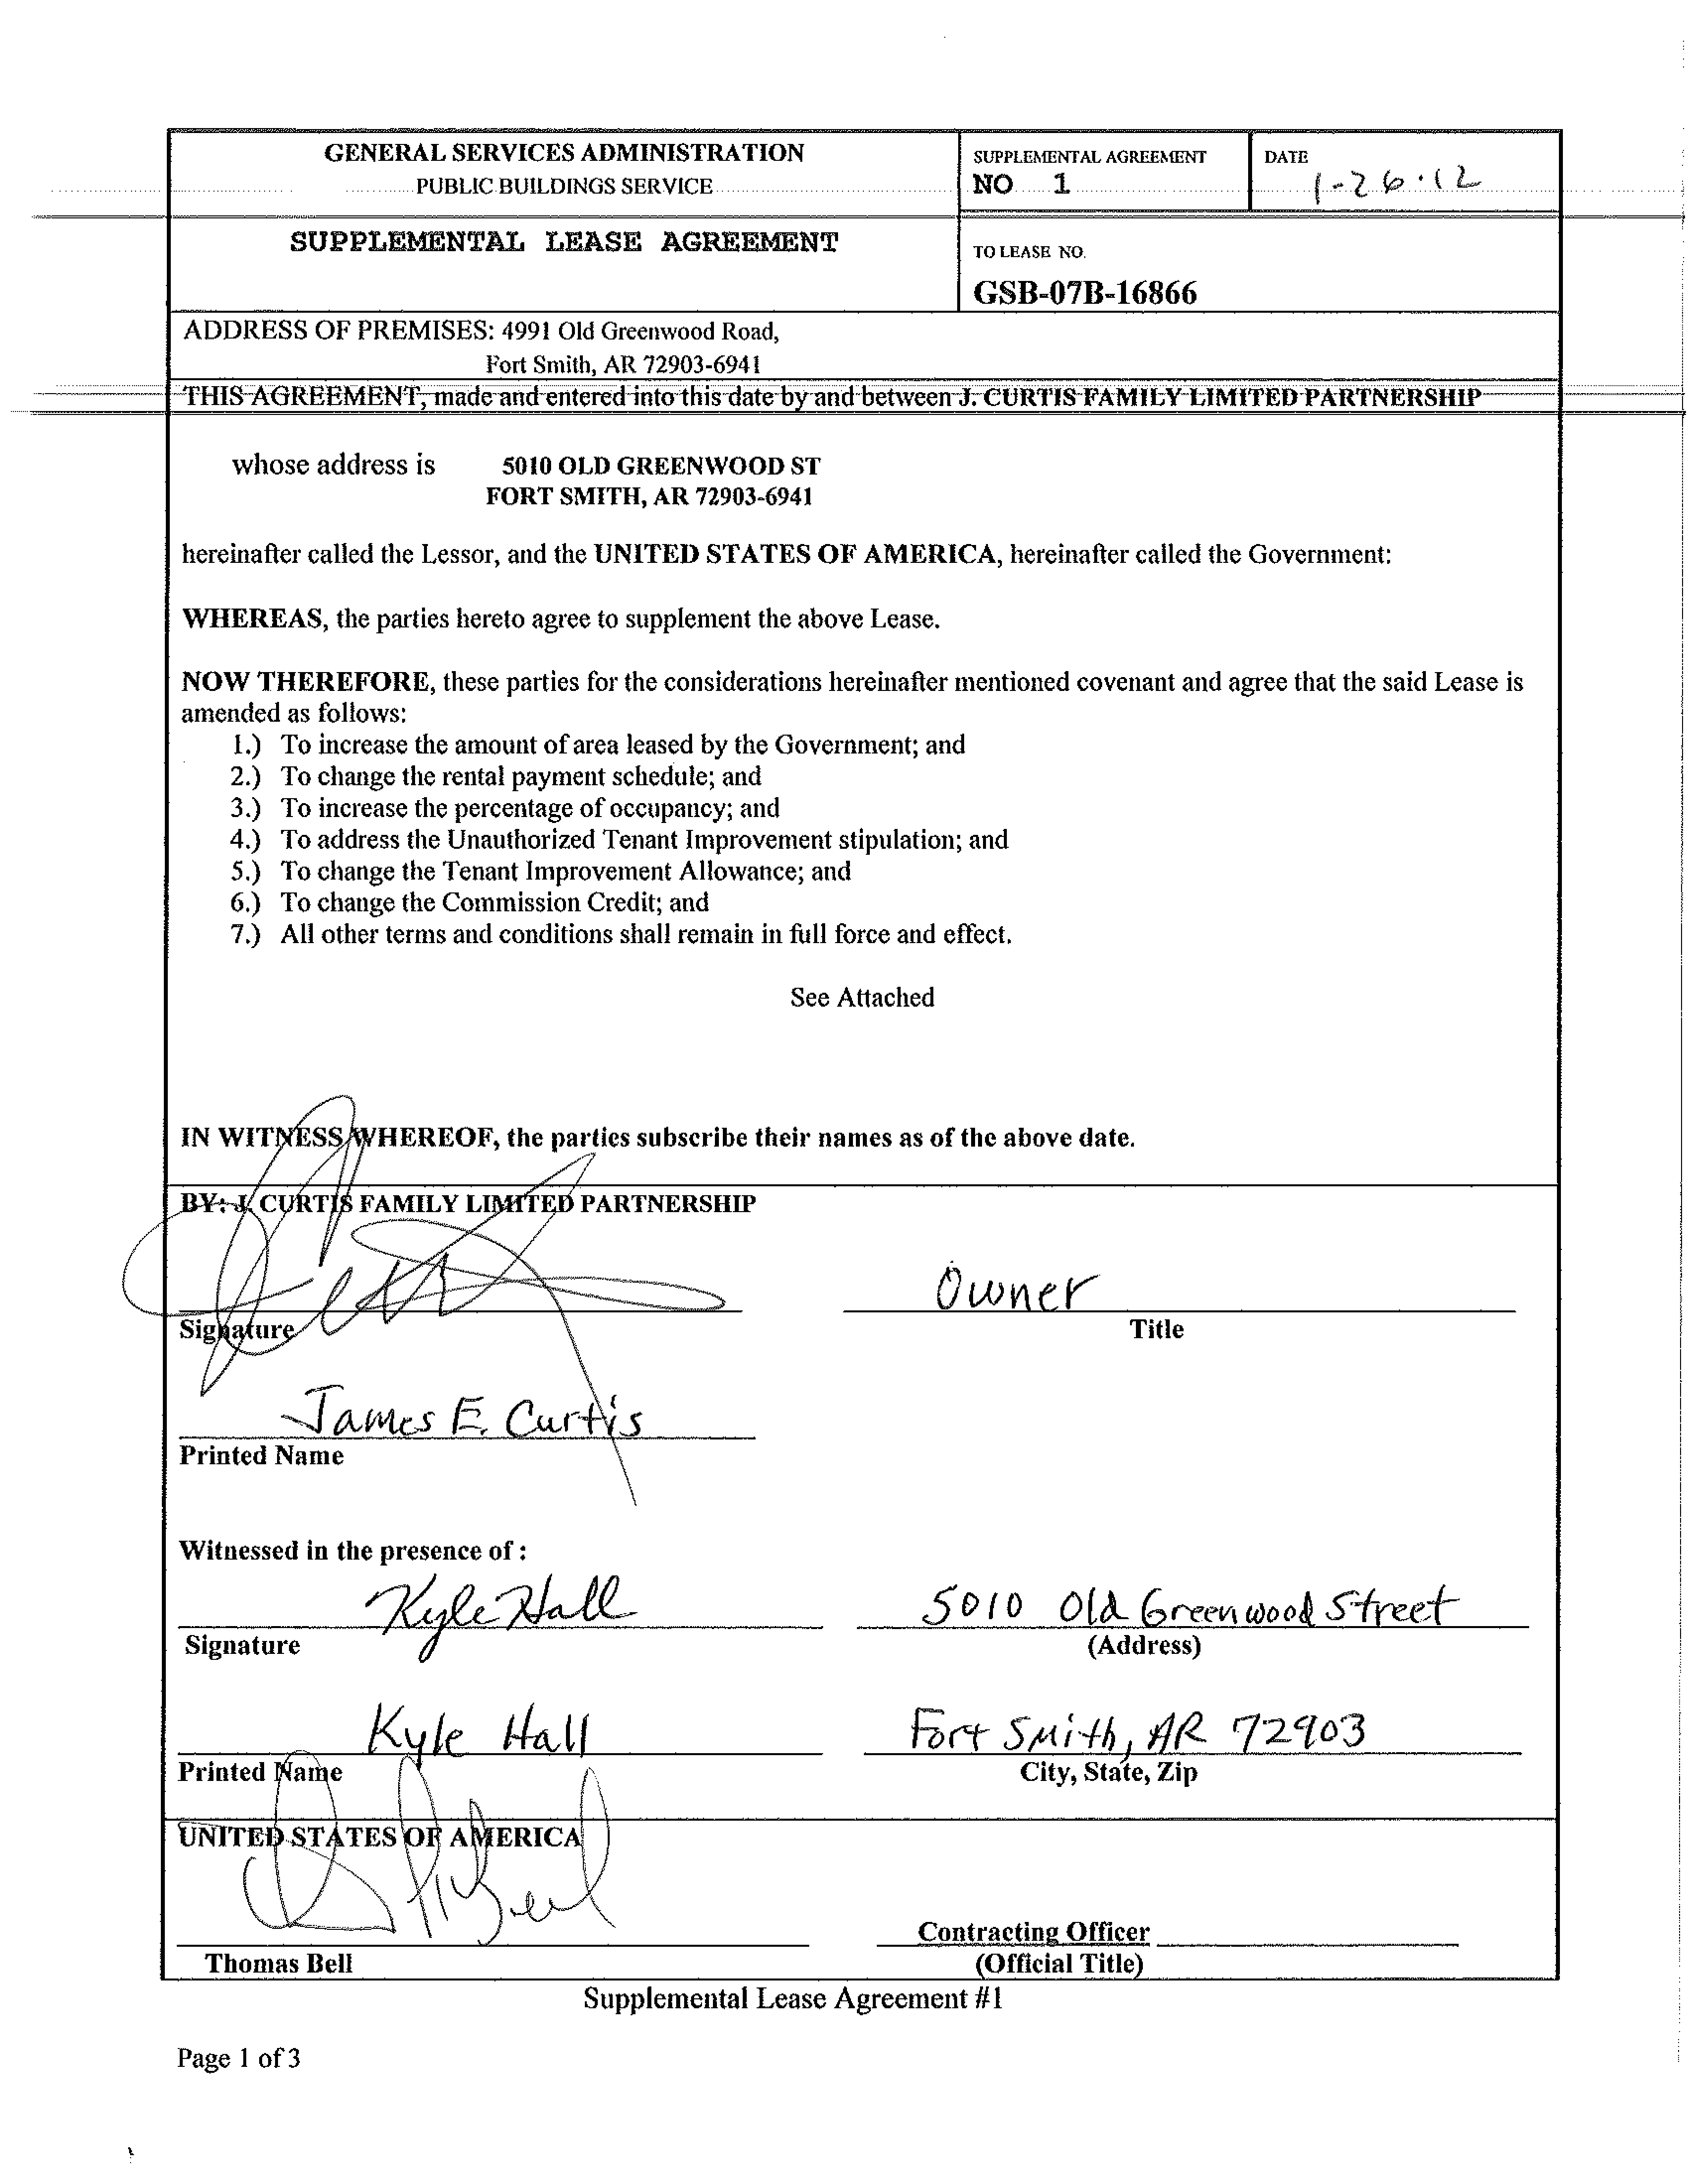 GENERAL SERVICES ADMINISTRATION
PUBLIC BUILDINGS SERVICE
SUPPLEMENTAL AGREEMENT
NO 1
DATE
1-26-12
SUPPLEMENTAL LEASE AGREEMENT
TO LEASE NO.
GSB-07B-16866
ADDRESS OF PREMISES: 4991 Old Greenwood Road,
Fort Smith, AR 72903-6941
THIS AGREEMENT, made and entered into this date by and between J. CURTIS FAMILY LIMITED PARTNERSHIP
whose address is 5010 OLD GREENWOOD ST
FORT SMITH, AR 72903-6941
hereinafter called the Lessor, and the UNITED STATES OF AMERICA, hereinafter called the Government:
WHEREAS, the parties hereto agree to supplement the above Lease.
NOW THEREFORE, these parties for the considerations hereinafter mentioned covenant and agree that the said Lease is
amended as follows:
1.) To increase the amount of area leased by the Government; and
2.) To change the rental payment schedule; and
3.) To increase the percentage of occupancy; and
4.) To address the Unauthorized Tenant Improvement stipulation; and
5.) To change the Tenant Improvement Allowance; and
6.) To change the Commission Credit; and
7.) All other terms and conditions shall remain in full force and effect.
See Attached
IN WITNESS WHEREOF, the parties subscribe their names as of the above date.
BY: J. CURTIS FAMILY LIMITED PARTNERSHIP
Owner
Signature Title
James E. Curtis
Printed Name
Witnessed in the presence of :
Kyle Hall 5010 Old Greenwood Street
Signature (Address)
Kyle Hall Fort Smith, AR 72903
Printed Name City, State, Zip
UNITED STATES OF AMERICA
Contracting Officer
Thomas Bell (Official Title)
Supplemental Lease Agreement #1
Page 1 of 3